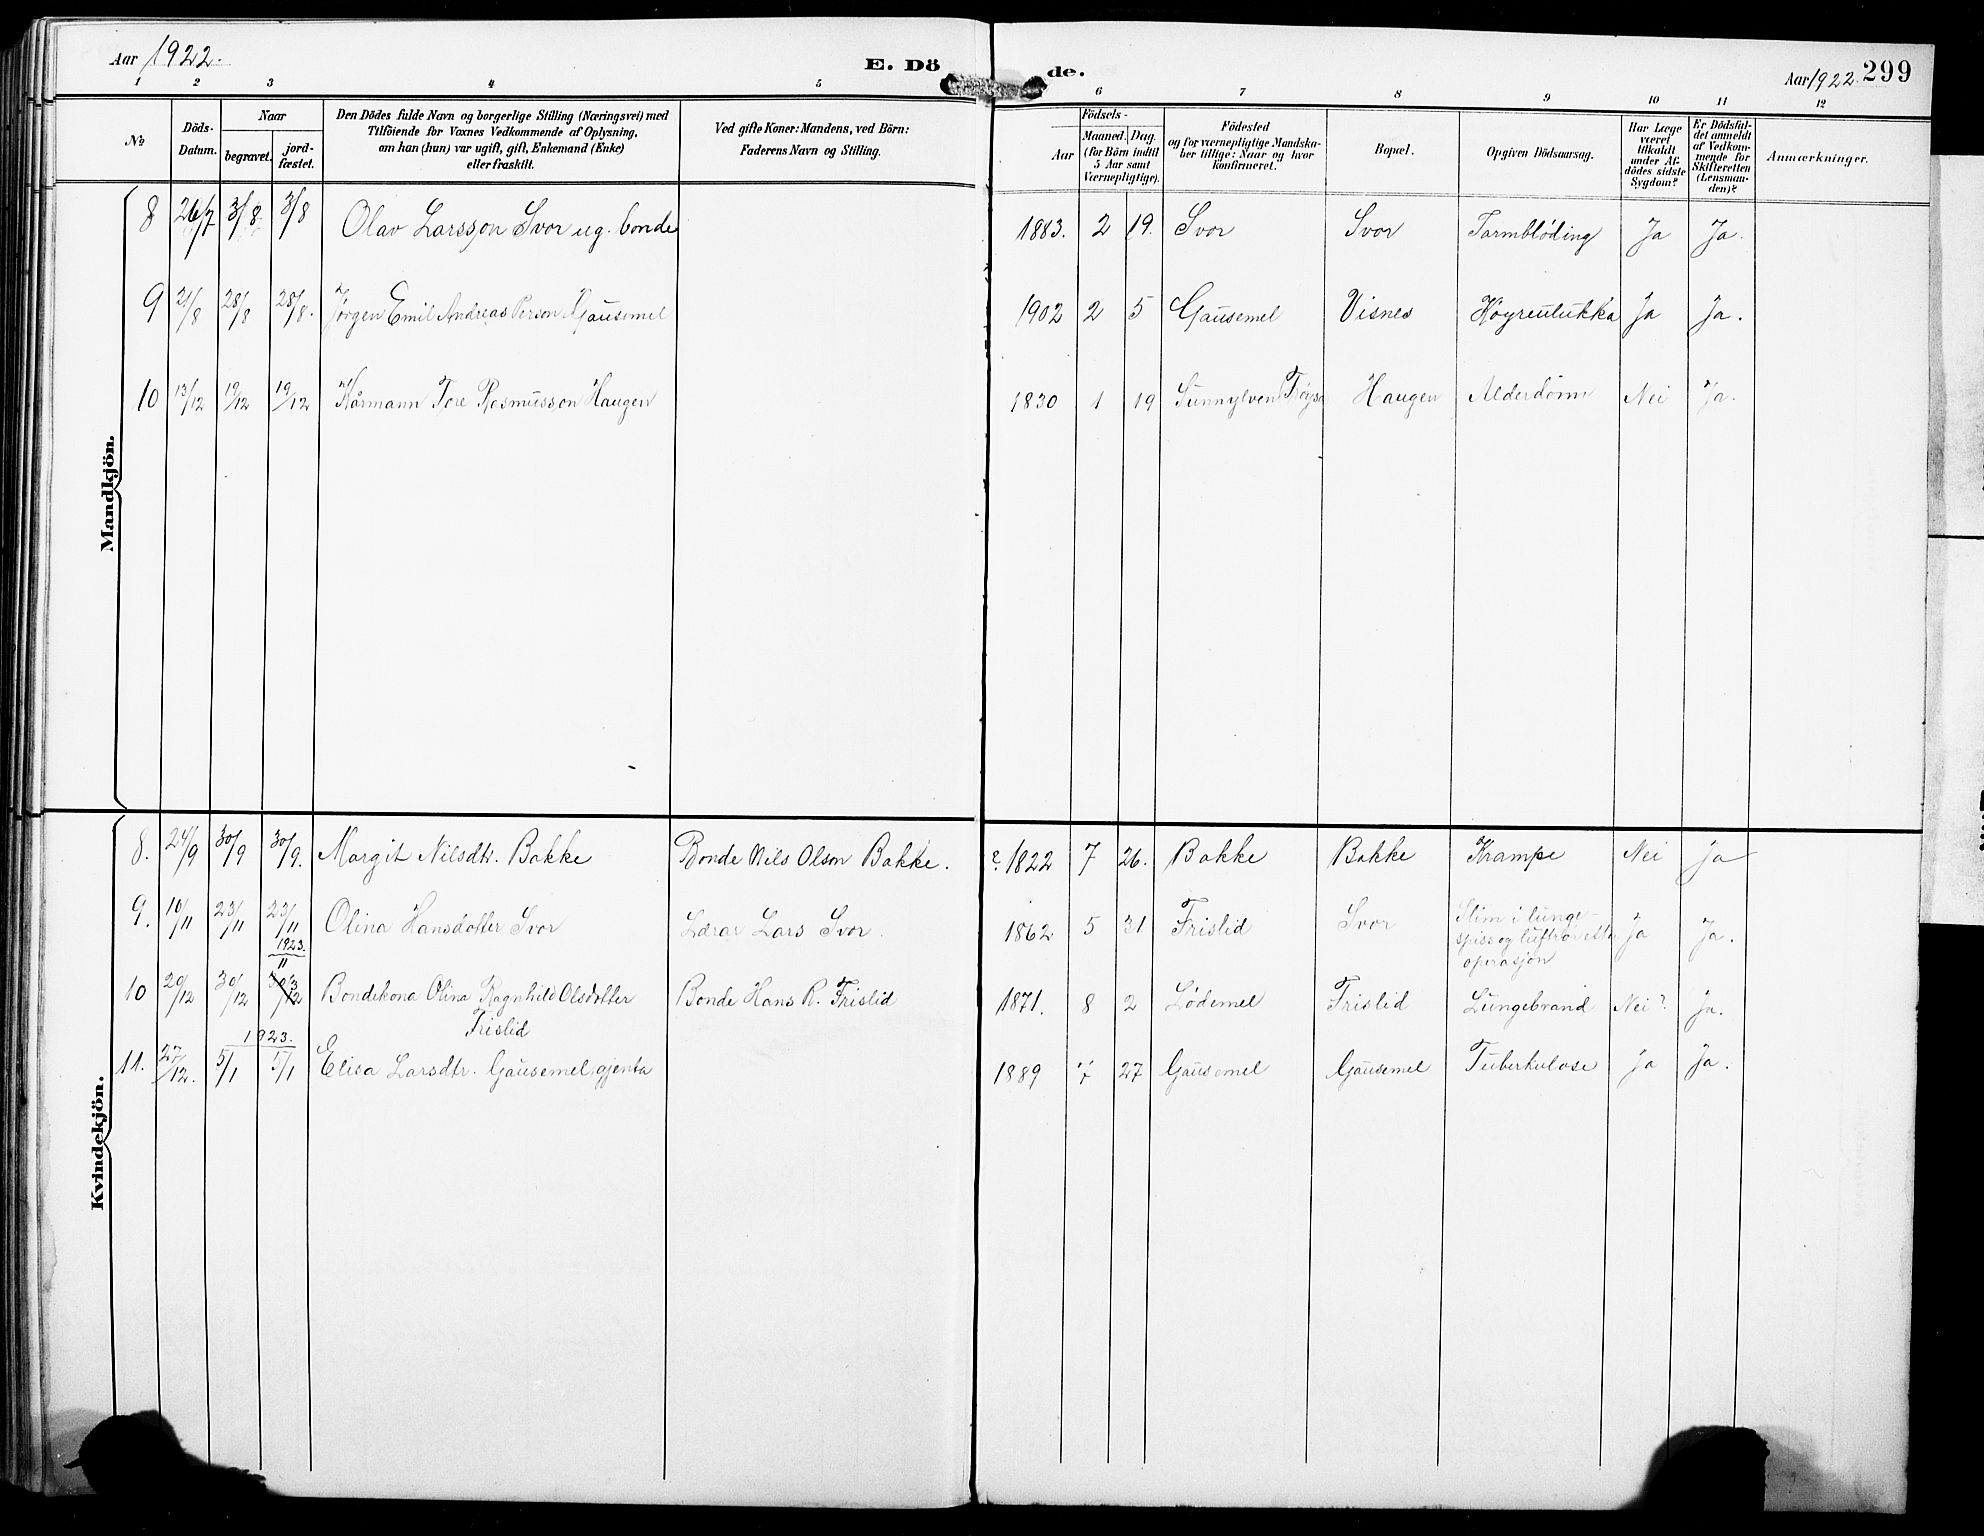 Aar 1922.
E. Dö
de.
Aar 1922. 299
1 2 3 4 5 6 7 8 9 10 11 12
No
Döds-Datum.
Naar
begravet.
jord-fæstet.
Den Dödes fulde Navn og borgerlige Stilling (Næringsvei) med
Tilföiende for Voxnes Vedkommende af Oplysning,
om han (hun) var ugift, gift, Enkemand (Enke)
eller fraskilt.
Ved gifte Koner: Mandens, ved Börn:
Faderens Navn og Stilling.
Födsels-
Aar
Maaned. Dag.
(for Börn indtil
5 Aar samt
Værnepligtige).
Födested
og for værnepligtige Mandska-
ber tillige: Naar og hvor
konfirmeret.
Bopæl.
Opgiven Dödsaarsag.
Har Læge
været
tilkaldt
under Af-
dödes sidste
Sygdom?
Er Dödsfal-
det anmeldt
af Vedkom-
mende for
Skifteretten
(Lensman-
den)?
Anmærkninger.
Mandkjön.
8 26/7 3/8 3/8 Olav Larsson Svor ug. bonde 1883. 2 19. Svor Svor Tarmblöding Ja Ja.
9 21/8 28/8 28/8. Jørgen Emil Andreas Person Gausemel 1902 2 5 Gausemel Visnes Köyreulukka Ja Ja.
10 13/12 19/12 19/12 Kårmann Tore Rasmusson Haugen 1830 1 19 Sunnylven Haugen Alderdöm Nei Ja.
Kvindekjön.
8. 24/9 30/9 30/9. Margit Nilsdtr. Bakke Bonde Nils Olson Bakke. ? 1822 7 26. Bakke Bakke Krampe Nei Ja
9. 10/11 23/11 23/11 Olina Hansdotter Svor Lærar Lars Svor. 1862 5 31 Frislid Svor Slim i lunge-
spiss og luftrör etter
operasjon Ja Ja.
1923.
10 20/12 30/12 30/12 11/3 Bondekona Olina Ragnhild Olsdotter
Frislid Bonde Hans R. Frislid 1871. 8 2 Lödemel Frislid Lungebrand Nei? Ja.
1923.
11. 27/12. 5/1 5/1 Elisa Larsdtr. Gausemel, gjenta 1889 7 27 Gausemel Gausemel Tuberkulose Ja Ja.